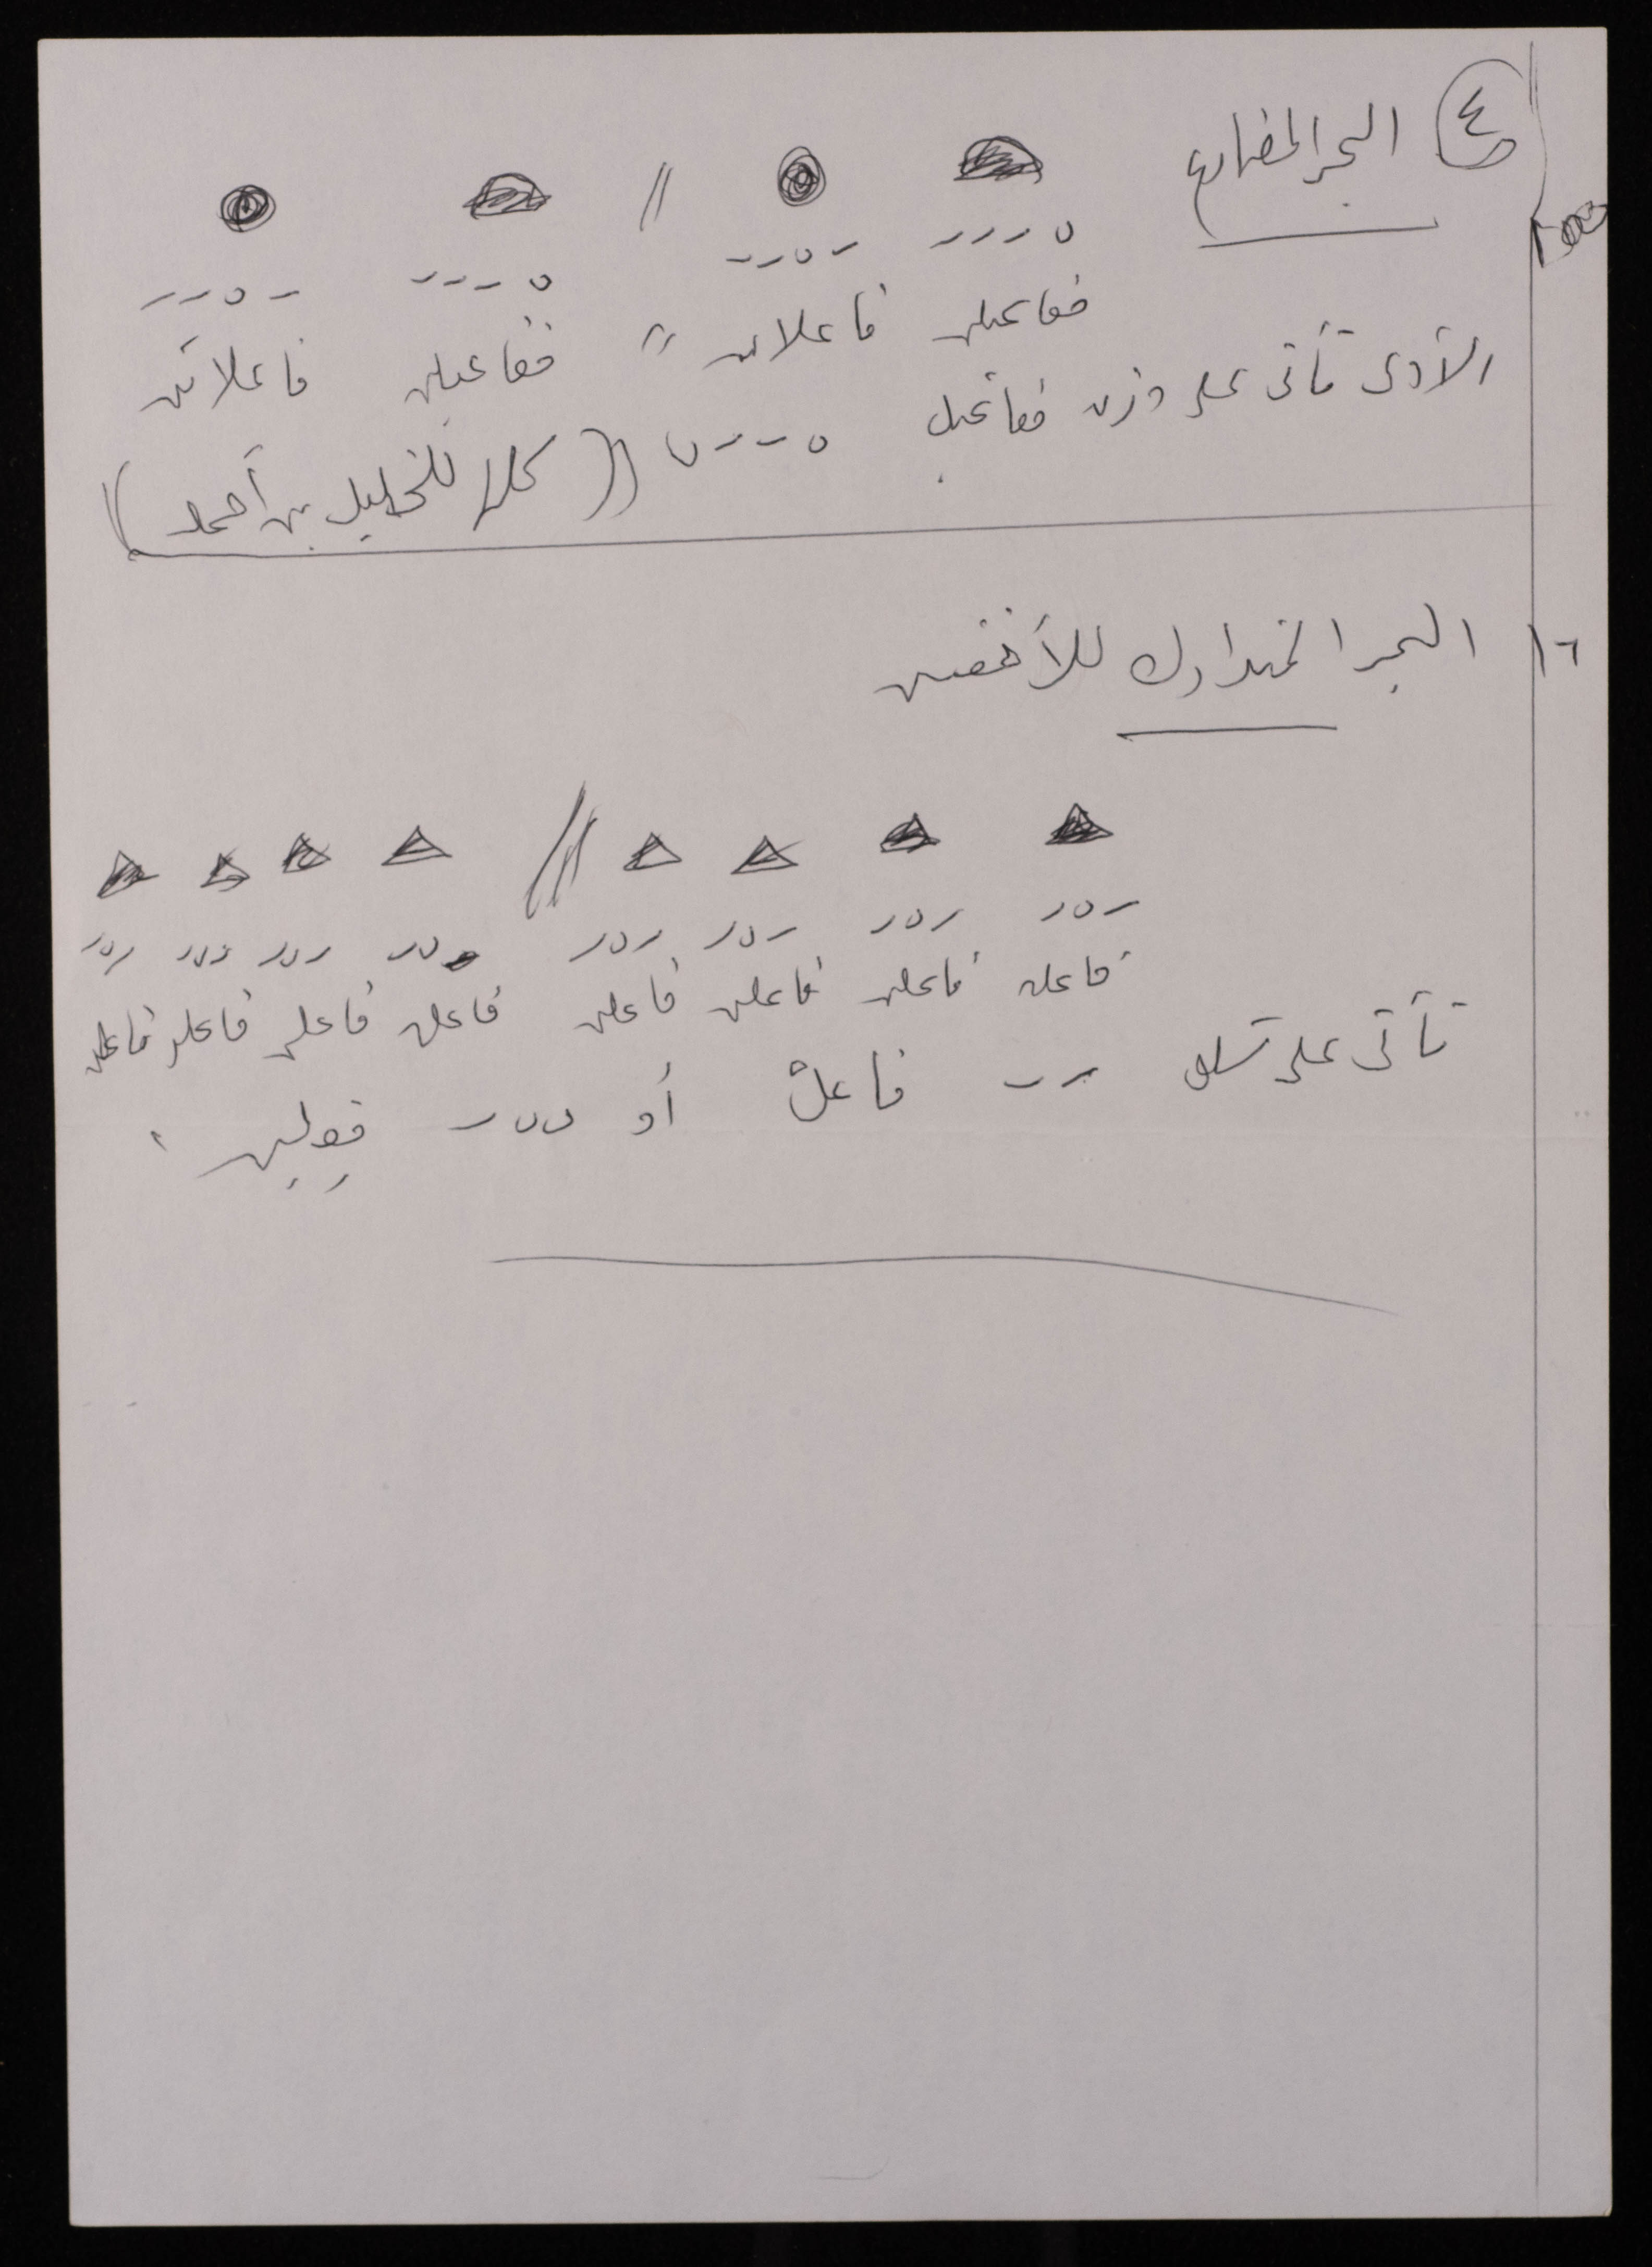 ٤ البحر المضارع
ں - - - - ں - - // ں - - - - ں - -
مفاعيلن فاعلاتن // مفاعيلن فاعلاتن
الأولى تأتى على وزن مفاعيل ں - - ں (( كلها للخليل بن أحمد ))
١٦ البحر المتدارك للأخفش
- ں - - ں - - ں - - ں - - ں - - ں - - ں - - ں -
فاعلن فاعلن فاعلن فاعلن فاعلن فاعلن فاعلن فاعلن
تأتى على شكل - - فاعلْ أو ں ں -